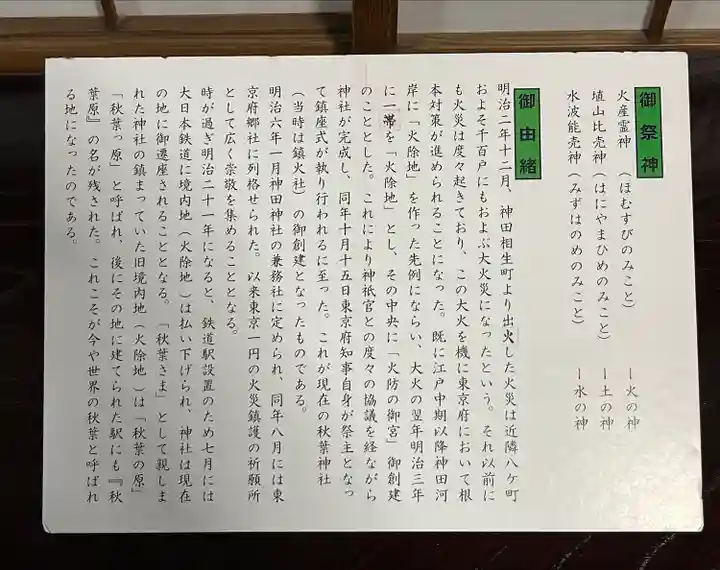 御祭神
火産霊神 (ほむすびのみこと) ー火の神
埴山比売神 (はにやまひめのみこと) ー土の神
水波能売神 (みずはのめのみこと) ー水の神
御由緒
明治二年十二月、神田相生町より出火した火災は近隣八ケ町
およそ千百戸にもおよぶ大火災になったという。それ以前に
も火災は度々起きており、この大火を機に東京府において根
本対策が進められることになった。既に江戸中期以降神田河
岸に「火除地」を作った先例にならい、大火の翌年明治三年
に一帯を「火除地」とし、その中央に「火防の御宮」御創建
のこととした。これにより神祇官との度々の協議を経ながら
神社が完成し、同年十月十五日東京府知事自身が祭主となっ
て鎮座式が執り行われるに至った。これが現在の秋葉神社
(当時は鎮火社)の御創建となったものである。
明治六年一月神田神社の兼務社に定められ、同年八月には東
京府郷社に列格せられた。以来東京一円の火災鎮護の祈願所
として広く崇敬を集めることとなる。
時が過ぎ明治二十一年になると、鉄道駅設置のため七月には
大日本鉄道に境内地(火除地)は払い下げられ、神社は現在
の地に御遷座されることとなる。「秋葉さま」として親しま
れた神社の鎮まっていた旧境内地(火除地)は「秋葉の原」
「秋葉っ原」と呼ばれ、後にその地に建てられた駅にも『秋
葉原』の名が残された。これこそが今や世界の秋葉と呼ばれ
る地になったのである。